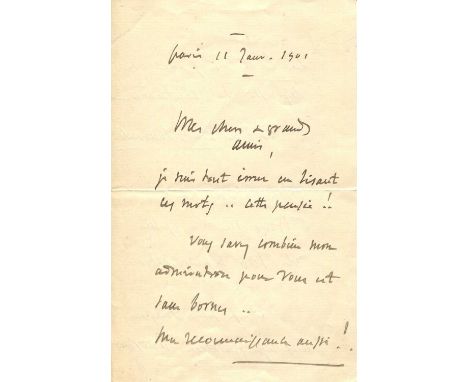 Paris 11 Janv. 1901
Mes chers & grands
amis,
je suis tout ému en lisant
ces mots .. cette pensée !!
Vous savez combien mon
admiration pour vous est
sans bornes ..
Ma reconnaissance aussi !!